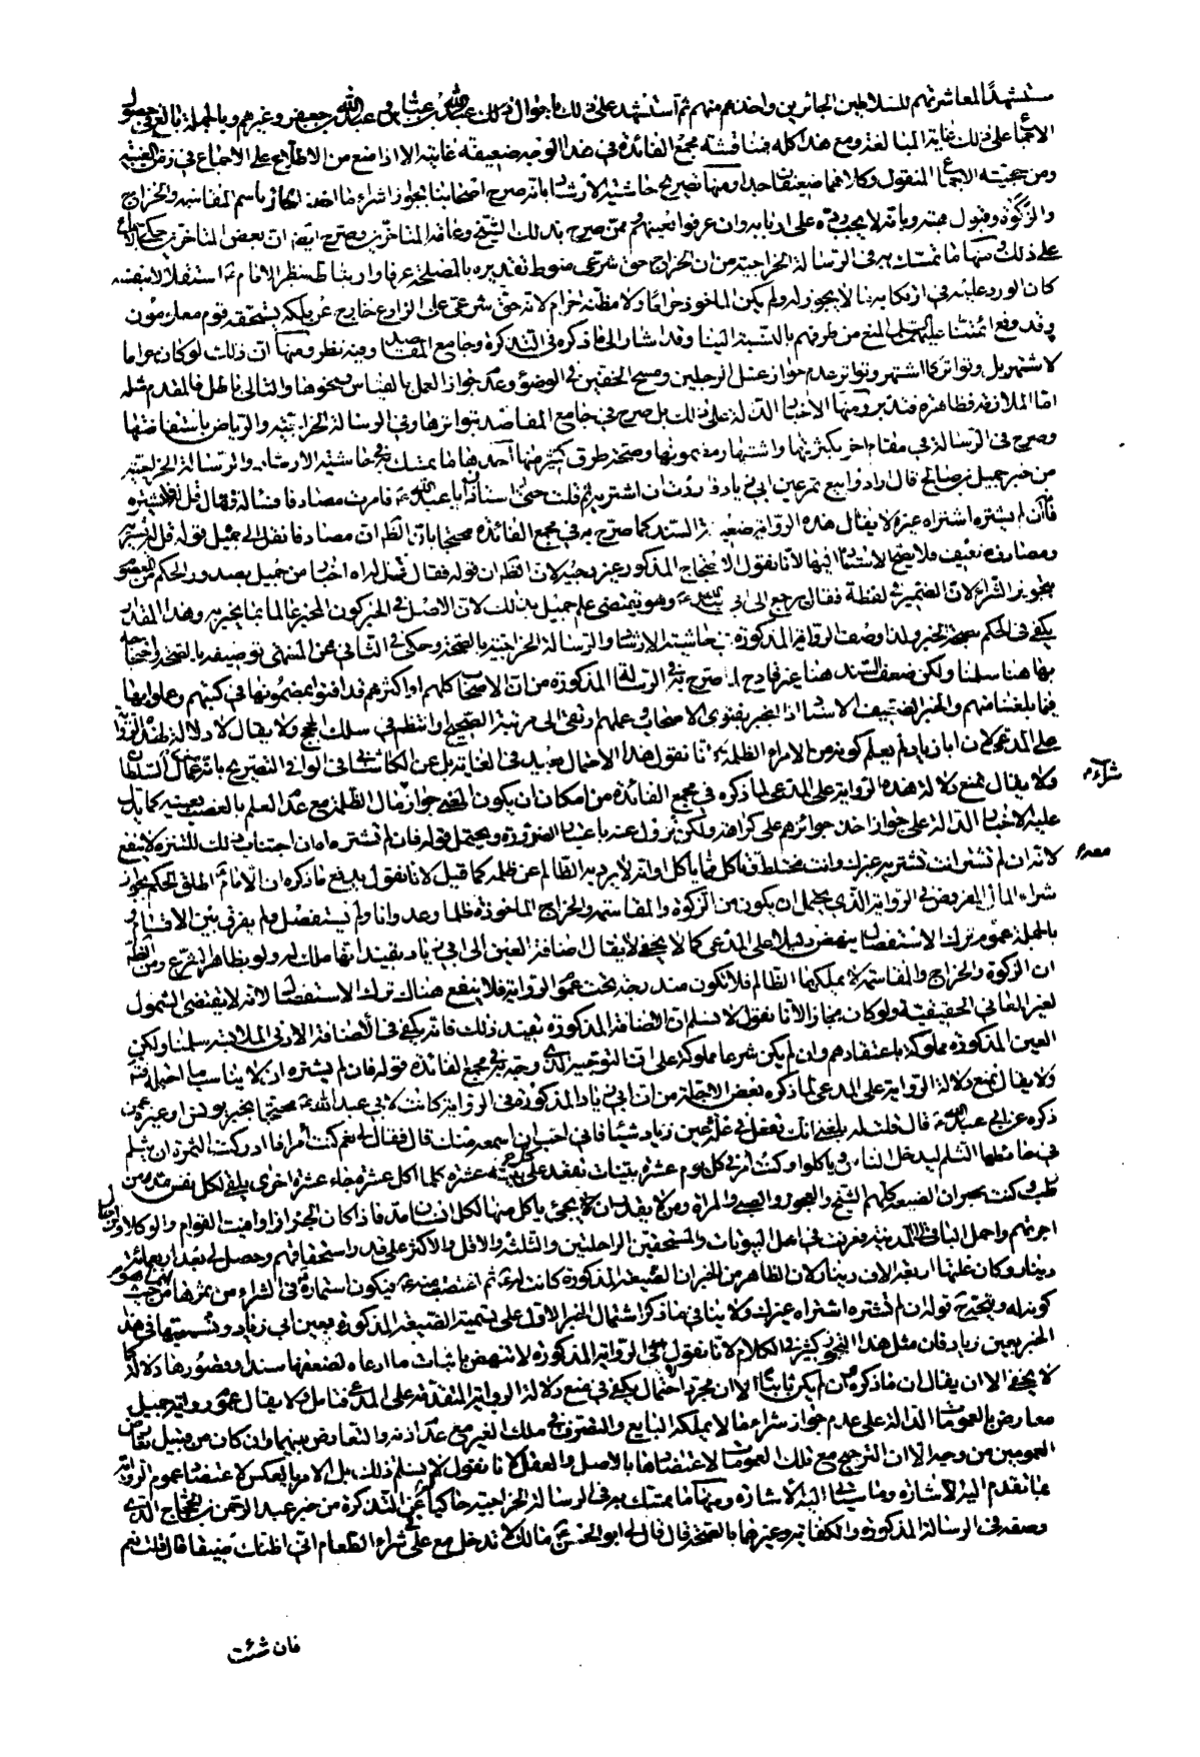 مستشهدا لمعاشرتهم للسلاطين الجائرين واخذهم منهم ثم استشهد على ذلك باحوال عبد الله بن عباس وعبد الله بن جعفر وغيرهم وبالجملة بالغ في حصول
الاجماع على ذلك غاية المبالغة ومع هذا كله فمناقشة مجمع الفائدة في هذا الوجه ضعيفة غايته الا اذا منع من الاطلاع على الاجماع في زمن الغيبة
ومن حجيته الاجماع المنقول وكلاهما ضعيفان جدا ومنها تصريح حاشية الارشاد بانه صرح اصحابنا بجواز شراء ما اخذه الجائر باسم المقاسمة والخراج
والزكوة وقبول هبته وبانه لا يجب رده على اربابه وان عرفوا بعينهم وممن صرح بذلك الشيخ وعامة المتاخرين وصرح ايضا ان بعض المتاخرين حكى
على ذلك ومنها ما تمسك به في الرسالة الخراجية من ان الخراج حق شرعي منوط تقديره بالمصلحة عرفا واربابنا نظر الامام
كان الوزر عليه في ارتكابه ما لا يجوز له ولم يكن الماخوذ حراما ولا مظنة حرام لانه حق شرعي على الزارع خارج عن ملكه يستحقه قوم معلومون
وقد رفع ائمتنا عليهم السلام المنع من طرفهم بالنسبة الينا وقد اشار الى ما ذكره في التذكرة وجامع المقاصد وفيه نظر ومنها ان ذلك لو كان حراما
لاشتهر بل وتواتر كما اشتهر وتواتر عدم جواز غسل الرجلين ومسح الخفين في الوضوء وعدم جواز العمل بالقياس ونحوها والتالي باطل فالمقدم مثله
اما الملازمة فظاهرة فتدبر ومنها الاخبار الدالة على ذلك بل صرح في جامع المقاصد بتواترها وفي الرسالة الخراجية والرياض باستفاضتها
وصرح في الرسالة في مقام اخر بكثرتها واشتهار مضمونها وصحة طرق كثير منها احدها ما تمسك به في حاشية الارشاد والرسالة الخراجية
من خبر جميل بن صالح قال ارادوا بيع تمر عين ابي زياد فاردت ان اشتريه ثم قلت حتى استاذن ابا عبد الله ع فامرت مصادفا فساله فقال قل له فليشتره
فانه ان لم يشتره اشتراه غيره لا يقال هذه الرواية ضعيفة السند كما صرح به في مجمع الفائدة محتجا بان الظاهر ان مصادفا نقل الى جميل قوله قل له فليشتره
ومصادف ضعيف فلا يصح الاستناد اليها لانا نقول الاحتجاج المذكور غير وجيه لان الظاهر ان قوله فقال قل له اخبار من جميل بصدور الحكم من المعصوم
بتجويز الشراء لان الضمير في لفظة فقال يرجع الى ابي عبد الله ع وهو يقتضي علم جميل بذلك لان الاصل في الخبر كون المخبر عالما بما يخبر به وهذا القدر
يكفي في الحكم بصحة الخبر ولذا وصف الرواية المذكورة في حاشية الارشاد والرسالة الخراجية بالصحة وحكى في الثاني عن المنتهى توصيفه بالصحة واحتجاجه
بها هنا سلمنا ولكن ضعف السند هنا غير قادح لما صرح به في الرسالة المذكورة من ان الاصحاب كلهم او اكثرهم قد افتوا بمضمونها في كتبهم وعملوا بها
فيما بلغنا منهم والخبر الضعيف الاسناد اذا انجبر بفتوى الاصحاب وعملهم ارتقى الى مرتبة الصحيح وانتظم في سلك الحجج ولا يقال لا دلالة لهذه الرواية
على المدعى لان ابا زياد لم يعلم كونه من الامراء الظلمة لانا نقول هذا الاحتمال بعيد في الغاية بل عن الكاشاني في الوافي التصريح بانه من عمال السلطان
ولا يقال نمنع دلالة هذه الرواية على المدعى لما ذكره في مجمع الفائدة من امكان ان يكون المعنى جواز شراء مال الظلمة مع عدم العلم بالغصب بعينه كما يدل
عليه الاخبار الدالة على جواز اخذ جوائزهم على كراهة ولكن تزول عنه باعتبار الضرورة ويحتمل قوله فان لم تشتره اه ان اجتناب ذلك للتنزه لا ينفع
لانه ان لم تشتر انت تشتريه غيرك وانت مختلط معه فتاكل مما ياكل او انه لا يرد به الظالم عن ظلمه كما قيل لانا نقول يدفع ما ذكره ان الامام ع اطلق الحكم بجواز
شراء المال المعروض في الرواية الذي يحتمل ان يكون من الزكوة والمقاسمة والخراج الماخوذة ظلما وعدوانا ولم يستفصل ولم يفرق بين الاقسام
بالجملة عموم ترك الاستفصال ينهض دليلا على المدعى كما لا يخفى لا يقال اضافة العين الى ابي زياد يفيد انها ملك له ولو بظاهر الشرع ومن الظاهر
ان الزكوة والخراج والمقاسمة لا يملكها الظالم فلا تكون مندرجة تحت عموم الرواية فلا ينفع هناك ترك الاستفصال لانه لا يقتضي الشمول
لغير المعاني الحقيقية ولو كان مجازا لانا نقول لا نسلم ان الاضافة المذكورة تفيد ذلك فانه يكفي في الاضافة الادنى الملابسة سلمنا ولكن
العين المذكورة مملوكة باعتقادهم وان لم يكن شرعا مملوكة على ان التوجيه الذي وجه به في مجمع الفائدة قوله فان لم يشتره اه لا يناسب ما احتمله فتدبر
ولا يقال نمنع دلالة الرواية على المدعى لما ذكره بعض الاجلة من ان عين ابي زياد المذكورة في الرواية كانت لابي عبد الله ع محتجا بخبر يونس او غيره عمن
ذكره عن ابي عبد الله ع قال قلت له بلغني انك تفعل في غلة عين زياد شيئا فاني احب ان اسمعه منك قال فقال لي نعم كنت امر اذا ادركت الثمرة ان يثلم
في حيطانها الثلم ليدخل الناس وياكلوا وكنت امر في كل يوم عشرة بنيات يقعد على كل بنية عشرة كلما اكل عشرة جاء عشرة اخرى يلقى لكل نفس مد من
رطب وكنت بجيران الضيعة كلهم الشيخ والعجوز والصبي والمرأة ومن لا يقدر ان يجيء ياكل منها لكل انسان مد فاذا كان الجذاذ اوفيت القوام والوكلاء والرجال
اجرتهم واحمل الباقي الى المدينة ففرقت في اهل البيوتات والمستحقين الراحلتين والثلثة والاقل والاكثر على قدر استحقاقهم وحصل لي بعد اربعمائة
دينار وكان غلتها اربعة الاف دينار لان الظاهر من الخبر ان الضيعة المذكورة كانت له ع ثم اغتصب منه ع فيكون استمارة في الشراء من ثمرها من حيث
كونه له ويتجه قوله ان لم تشتره اشتراه غيرك ولا ينافي ما ذكر اشتمال الخبر الاول على تسمية الضيعة المذكورة بعين ابي زياد وتسميتها في هذا
الخبر بعين زياد فان مثل هذا التجوز كثير في الكلام لانا نقول هذه الرواية المذكورة لا تنهض باثبات ما ادعاه لضعفها سندا وقصورها دلالة كما
لا يخفى الا ان يقال ان ما ذكره وان لم يكن ثابتا الا ان مجرد احتمال يكفي في منع دلالة الرواية المتقدمة على المدعى فتامل ولا يقال عموم رواية جميل
معارض بالعمومات الدالة على عدم جواز شراء ما لا يملكه البايع والتصرف في ملك الغير مع عدم اذنه والتعارض بينهما وان كان من قبيل تعارض
العمومين من وجه الا ان الترجيح مع تلك العمومات لاعتضادها بالاصل والعقل لانا نقول لا نسلم ذلك بل الامر بالعكس لاعتضاد عموم الرواية
بما تقدم اليه الاشارة وما سياتي اليه الاشارة ومنها ما تمسك به في الرسالة الخراجية حاكيا عن التذكرة من خبر عبد الرحمن بن الحجاج الذي
وصفه في الرسالة المذكورة والكفاية وغيرهما بالصحة قال قال لي ابو الحسن ع مالك لا تدخل مع علي في شراء الطعام اني اظنك ضيقا قال قلت نعم
فان شئت